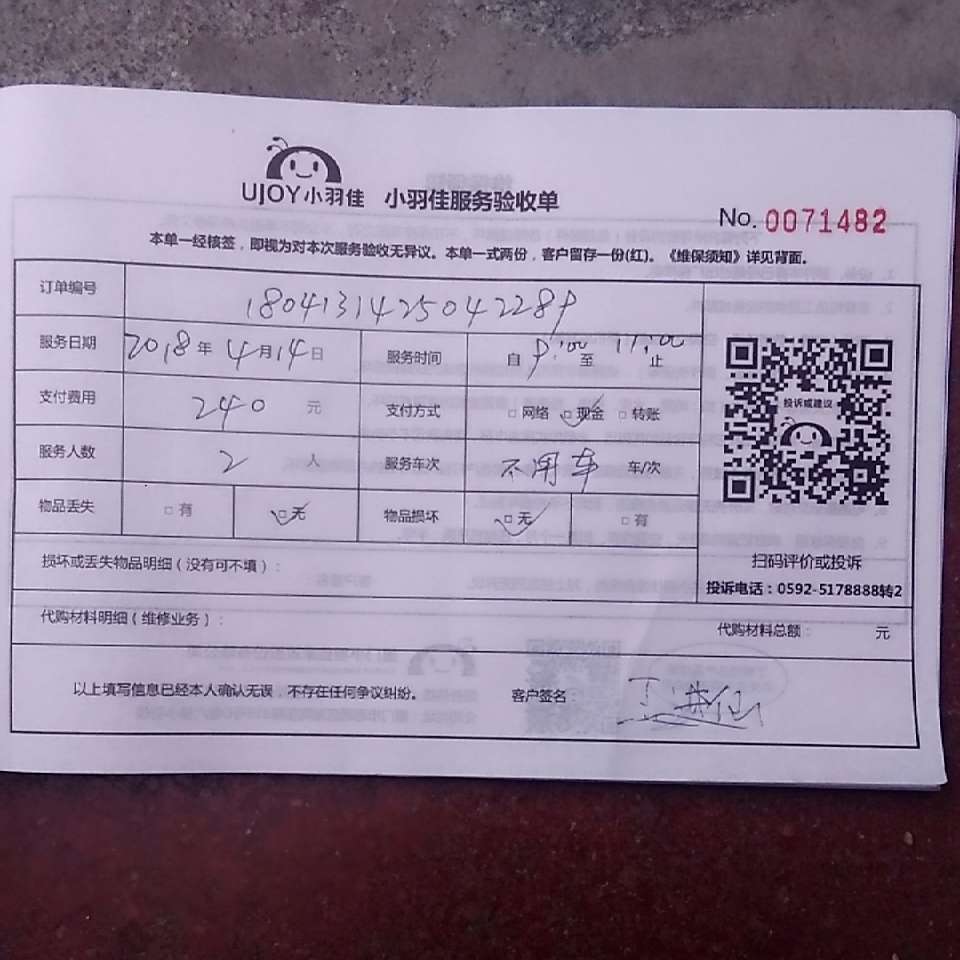 UJOY小羽佳 小羽佳服务验收单
No. 0071482
本单一经核签，即视为对本次服务验收无异议。本单一式两份，客户留存一份(红)。《维保须知》详见背面。
订单编号 1804131425042289
服务日期 2018年4月14日 服务时间 自9:00至17:00止
支付费用 240元 支付方式 □网络 □现金 □转账
服务人数 2人 服务车次 不用车 车/次
物品丢失 □有 □无 物品损坏 □无 □有
投诉或建议
扫码评价或投诉
投诉电话：0592-5178888转2
损坏或丢失物品明细（没有可不填）：
代购材料明细（维修业务）： 代购材料总额： 元
以上填写信息已经本人确认无误，不存在任何争议纠纷。 客户签名